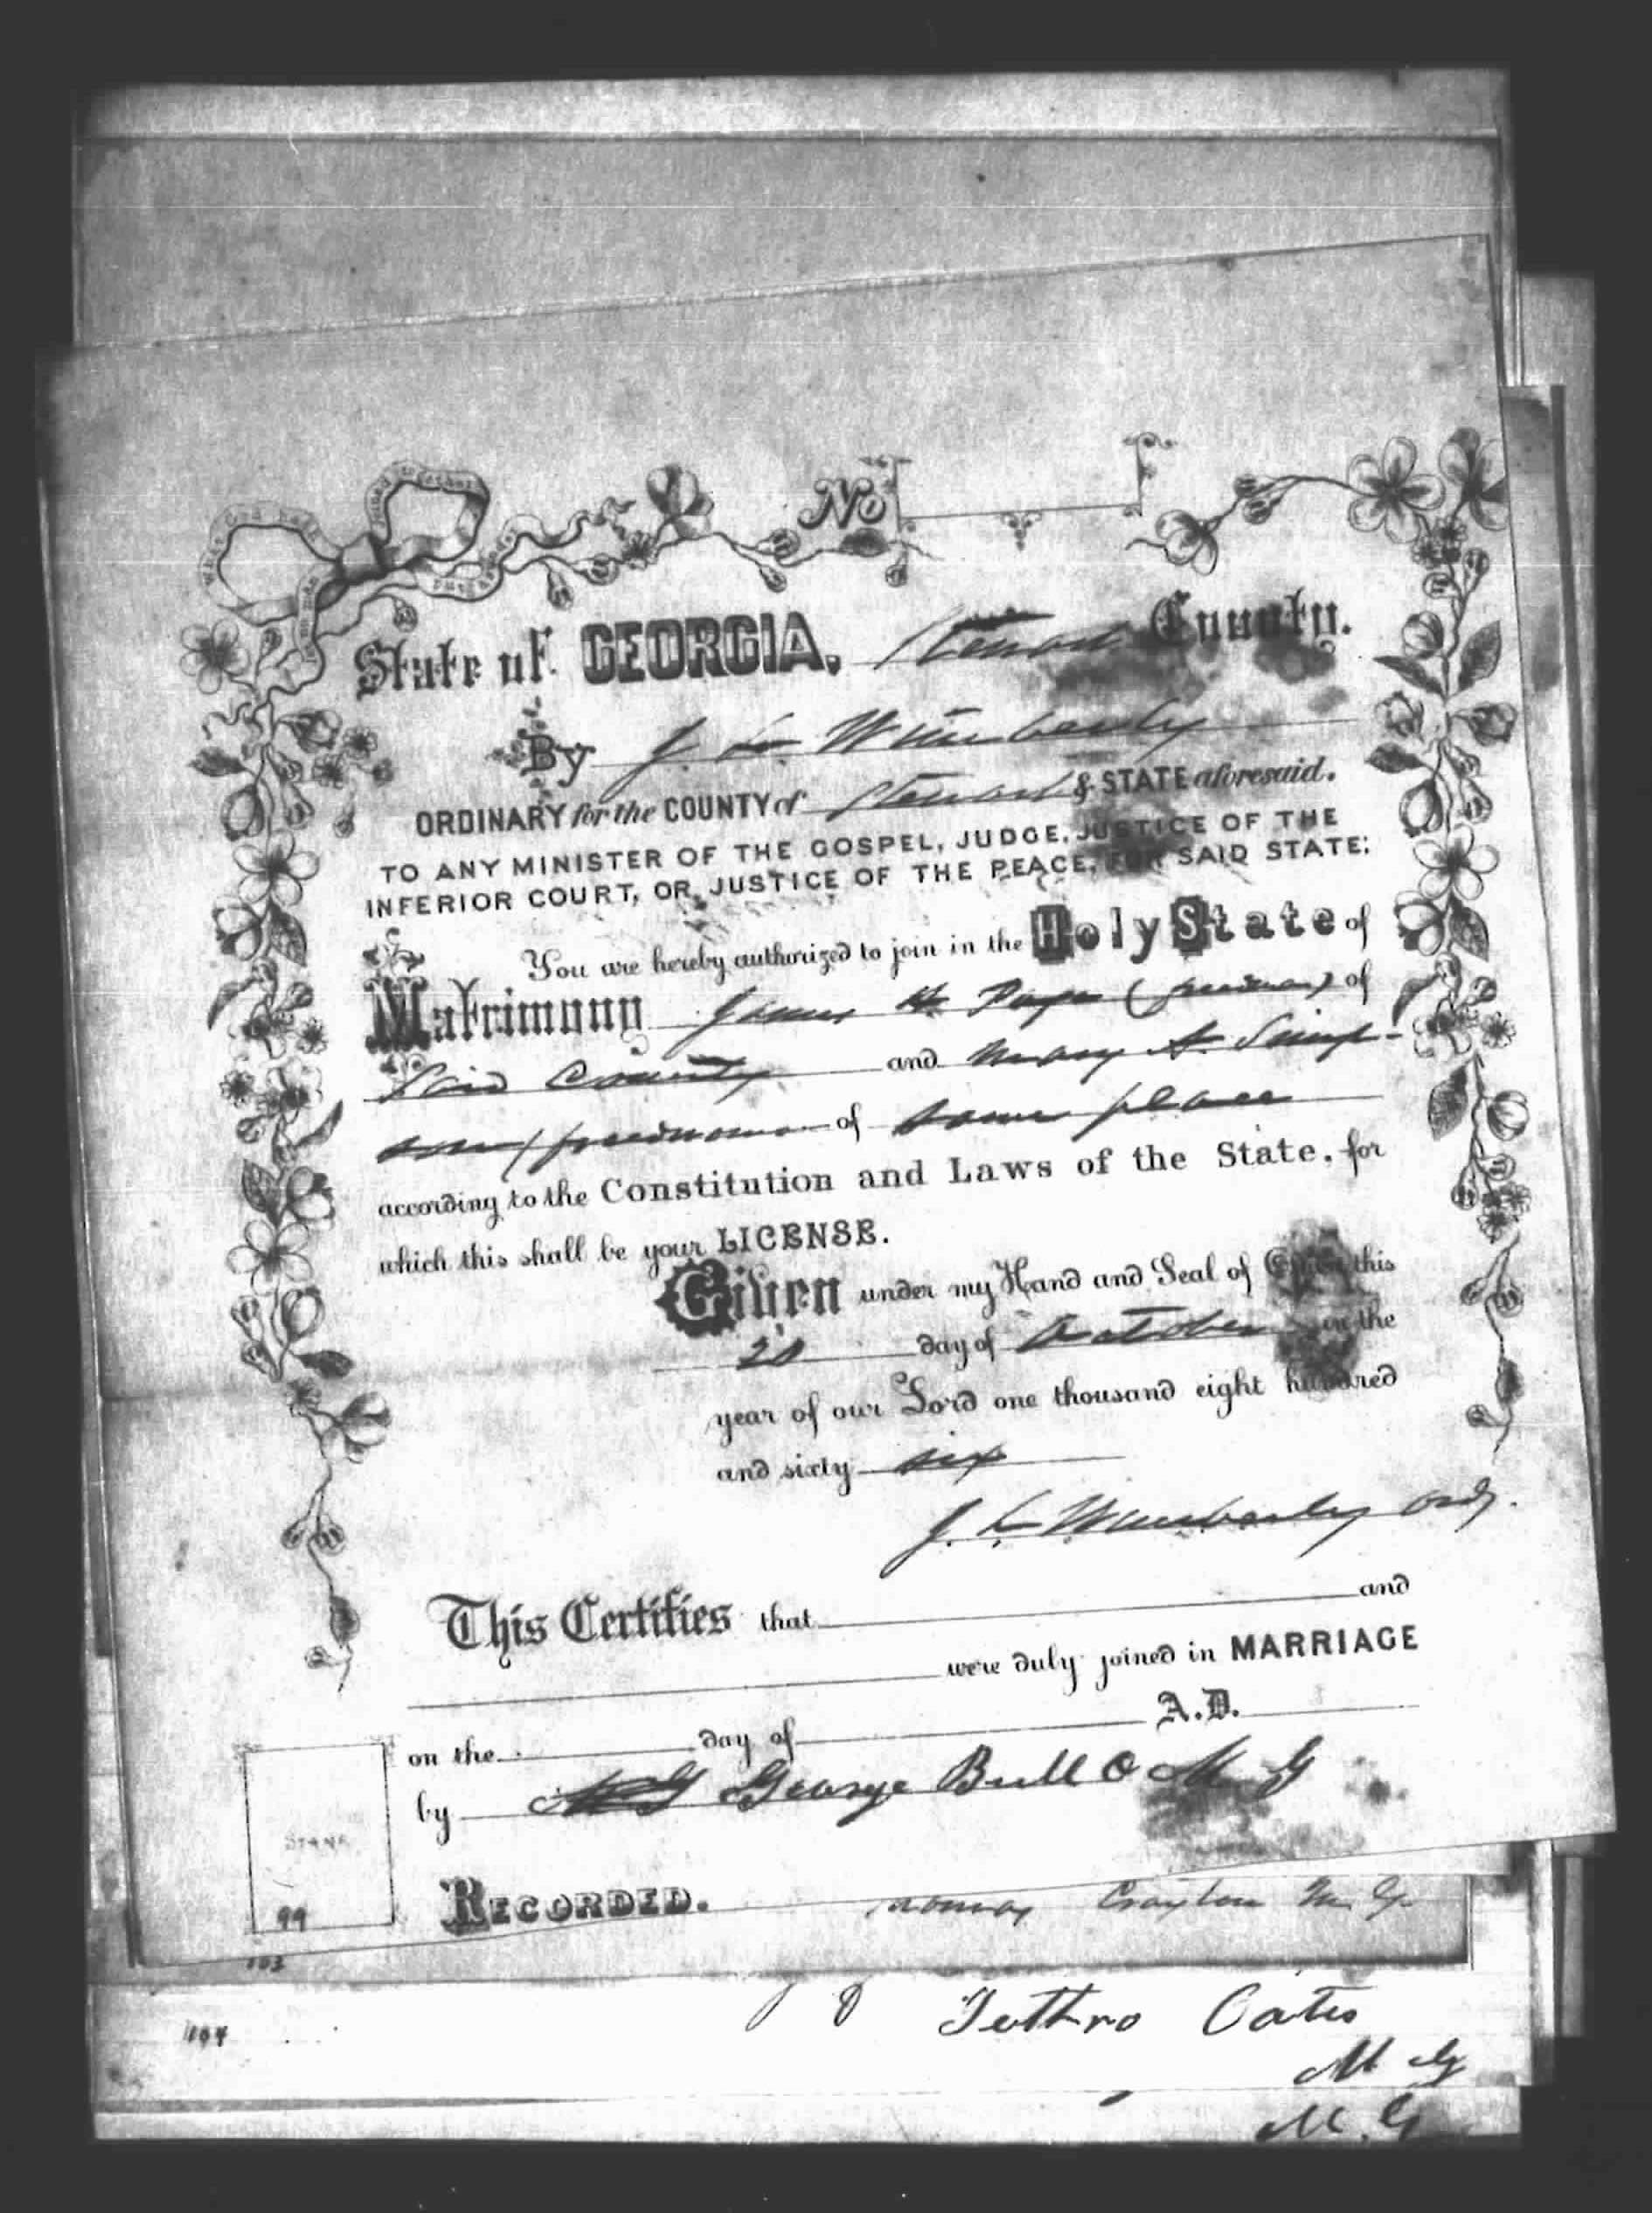 whom God hath joined together let no man put asunder
No
State of GEORGIA, Stewart County.
By J. L. Wimberly
ORDINARY for the COUNTY of Stewart & STATE aforesaid.
TO ANY MINISTER OF THE GOSPEL, JUDGE, JUSTICE OF THE
INFERIOR COURT, OR JUSTICE OF THE PEACE, FOR SAID STATE:
You are hereby authorized to join in the Holy State of
Matrimony James H. Page (freedman) of
Said County and Mary A. Simp-
son (freedwoman of same place
according to the Constitution and Laws of the State, for
which this shall be your LICENSE.
Given under my Hand and Seal of Office this
20 day of October in the
year of our Lord one thousand eight hundred
and sixty six
J. L. Wimberly Ordy.
This Certifies that and
were duly joined in MARRIAGE
on the day of A.D.
by George Bull M G
STAMP
99
RECORDED.
Crayton M. G.
103
104
Jethro Oates
M G
M. G